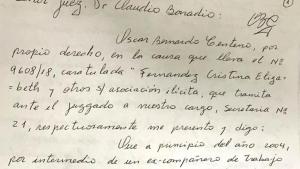 Señor Juez. Dr Claudio Bonadio:
Oscar Bernardo Centeno, por
propio derecho, en la causa que lleva el Nº
9608/18, caratulada "Fernandez Cristina Eliza-
beth y otros s/asociación ilicita, que tramita
ante el juzgado a vuestro cargo, Secretaria Nº
21, respectuosamente me presento y digo:
Que a principio del año 2004,
por intermedio de un ex-compañero de trabajo